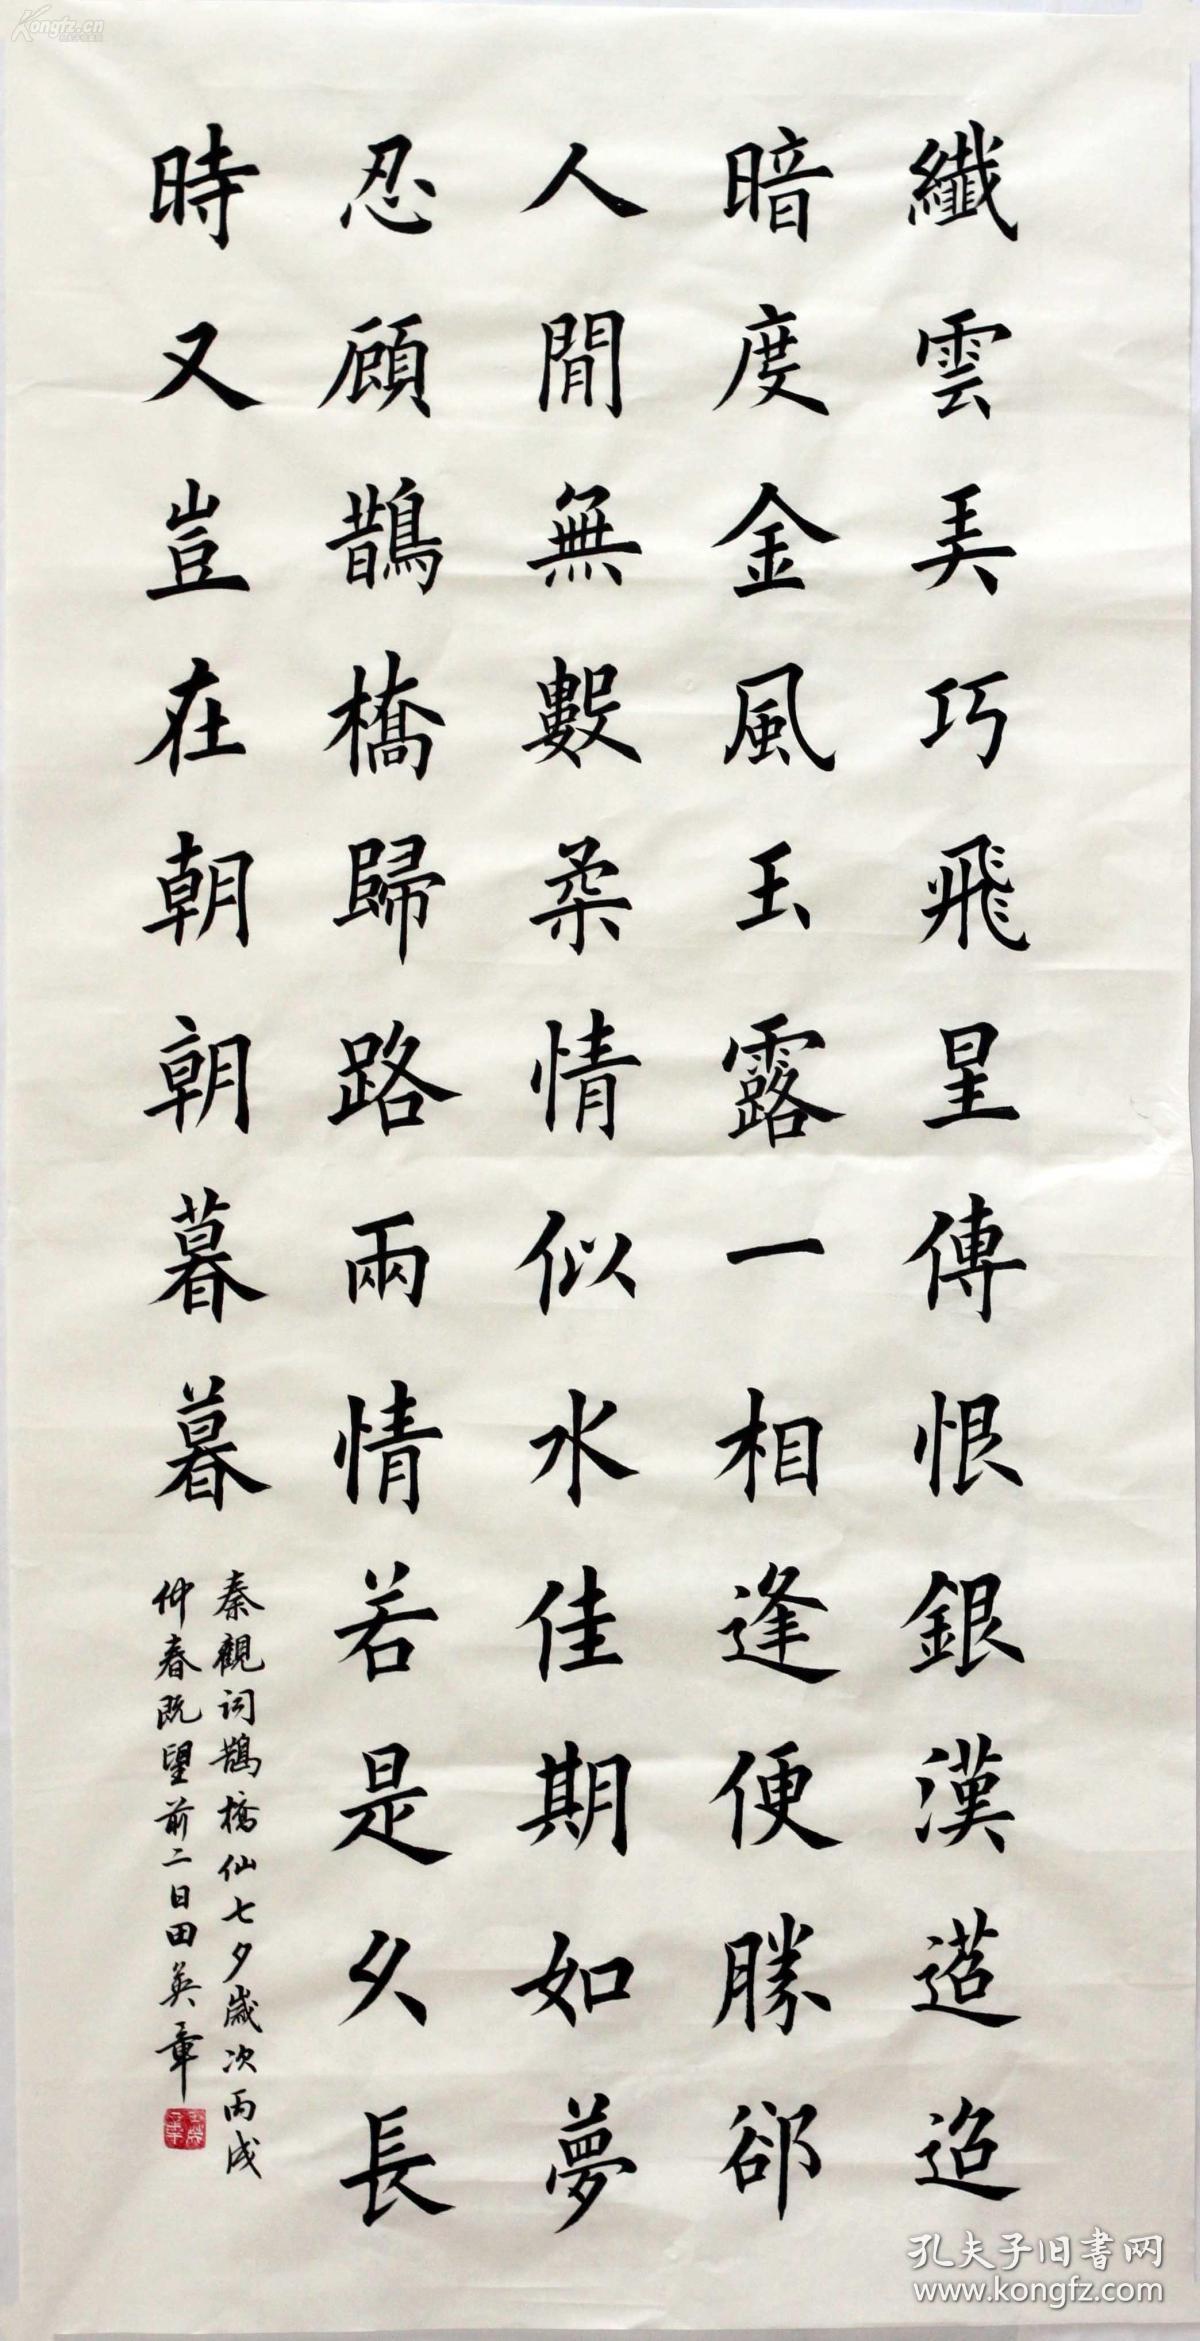 纖雲弄巧飛星傳恨銀漢迢迢
暗度金風玉露一相逢便勝郤
人閒無數柔情似水佳期如夢
忍顧鵲橋歸路兩情若是久長
時又豈在朝朝暮暮
秦觀词鵲橋仙七夕歲次丙戌
仲春既望前二日田英章
Kongfz.cn
孔夫子旧书网
www.kongfz.com